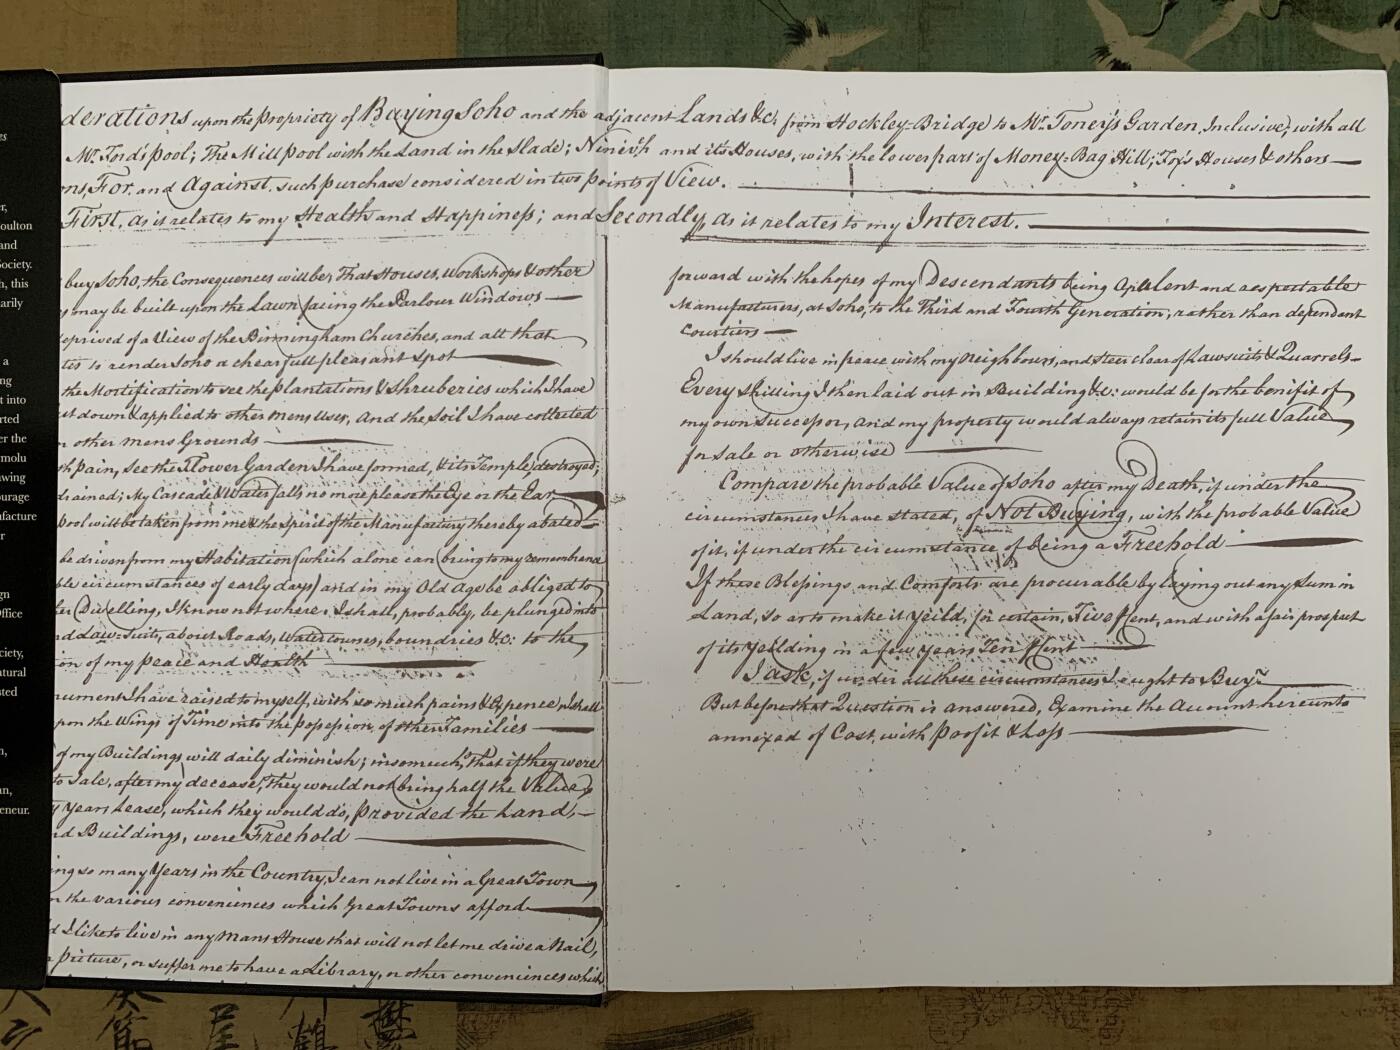 derations upon the Propriety of Buying Soho and the adjacent Lands &c; from Hockley-Bridge to Mr. Toney's Garden Inclusive, with all
Mr. Ford's Pool; The Mill Pool with the Land in the Slade; Ninevh and its Houses, with the lower part of Money-Bag Hill; Fox's Houses & others
ons, For, and Against, such purchase considered in two points of View.
First, as it relates to my Health and Happiness; and Secondly, as it relates to my Interest.
buy Soho, the Consequences will be: That Houses, Workshops & other
may be built upon the Lawn facing the Parlour Windows
eprived of a View of the Birmingham Churches, and all that
tes to render Soho a chearfull pleasant spot
the Mortification to see the Plantations & Shruberies which I have
ut down & applied to other mens Uses, And the Soil I have collected
other mens Grounds
th pain, see the Flower Garden I have formed, & its Temple, destroyed;
drained; My Cascade & Water falls no more please the Eye or the Ear
Pool will be taken from me & the Spirit of the Manufactory thereby abated
be driven from my Habitation (which alone can bring to my remembrance
ble circumstances of early days) and in my Old Age be obliged to
Dwelling, I know not where. I shall, probably, be plunged into
nd Law-Suits, about Roads, Watercourses, boundries &c: to the
ion of my Peace and Health
nument I have raised to myself, with so much pains & Expence, I shall
pon the Wings of Time into the Possession of other Families
of my Buildings will daily diminish; insomuch, that if they were
to Sale, after my decease, They would not bring half the Value,
Years Lease, which they would do, provided the Land,
nd Buildings, were Freehold
ing so many Years in the Country, I can not live in a Great Town
the various conveniences which Great Towns afford
d I like to live in any Mans House that will not let me drive a Nail,
picture, or suffer me to have a Library, or other conveniences which
forward with the hopes of my Descendants being Opulent and respectable
Manufacturers, at Soho, to the Third and Fourth Generation, rather than dependant
Courtiers
I should live in peace with my Neighbours, and steer clear of Lawsuits & Quarrels
Every shilling I then laid out in Buildings &c: would be for the benifit of
my own Successor, and my property would always retain its full Value
for Sale or otherwise
Compare the probable Value of Soho after my Death, if under the
circumstances I have stated, of Not Buying, with the probable Value
of it, if under the circumstance of Being a Freehold
If these Blessings and Comforts are procurable by laying out any Sum in
Land, so as to make it yeild, for certain, Five ⅌ Cent, and with a fair prospect
of its yeilding in a few years Ten ⅌ Cent
I ask, if under all these circumstances I ought to Buy?
But before that Question is answered, Examine the Account hereunto
annexed of Cost, with Profit & Loss
er,
oulton
and
Society.
h, this
arily
a
ng
t into
rted
er the
molu
awing
ourage
nufacture
r
gn
Office
ciety,
atural
sted
n,
an,
eneur.